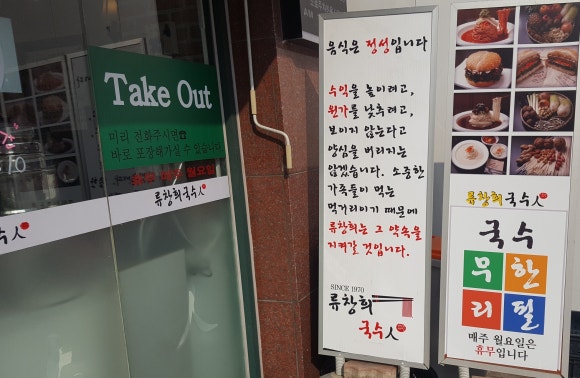 Take Out
미리 전화주시면
바로 포장해가실 수 있습니다
월요일
류창희국수人
음식은 정성입니다
수익을 높이려고,
원가를 낮추려고,
보이지 않는다고
양심을 버리지는
않겠습니다. 소중한
가족들이 먹는
먹거리이기 때문에
류창희는 그 약속을
지켜갈 것입니다.
SINCE 1970
류창희
국수人
류창희국수人
국수
무한
리필
매주 월요일은
휴무입니다